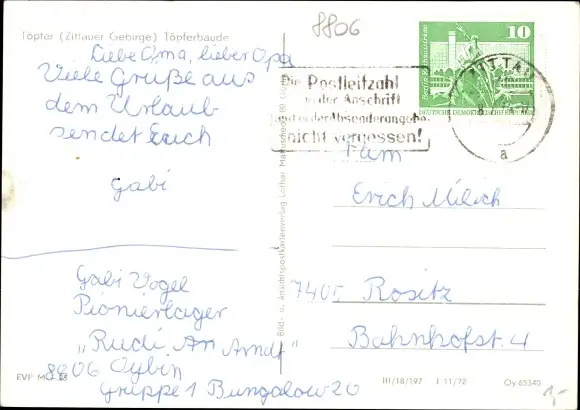 8806
Töpfer (Zittauer Gebirge) Töpferbaude
Liebe Oma, lieber Opa
Viele Grüße aus
dem Urlaub
sendet Euch
Gabi
Gabi Vogel
Pionierlager
"Rudi Arndt"
8806 Oybin
Gruppe 1 Bungalow 20
EVP M
Bild- u. Ansichtspostkartenverlag Lothar
10
DEUTSCHE DEMOKRATISCHE REPUBLIK
ZITTAU
a
Die Postleitzahl
in der Anschrift
und in der Absenderangabe
nicht vergessen!
Fam
Erich Milich
7405 Rositz
Bahnhofst. 4
III/18/197 I 11/72 Oy 65340
1,-